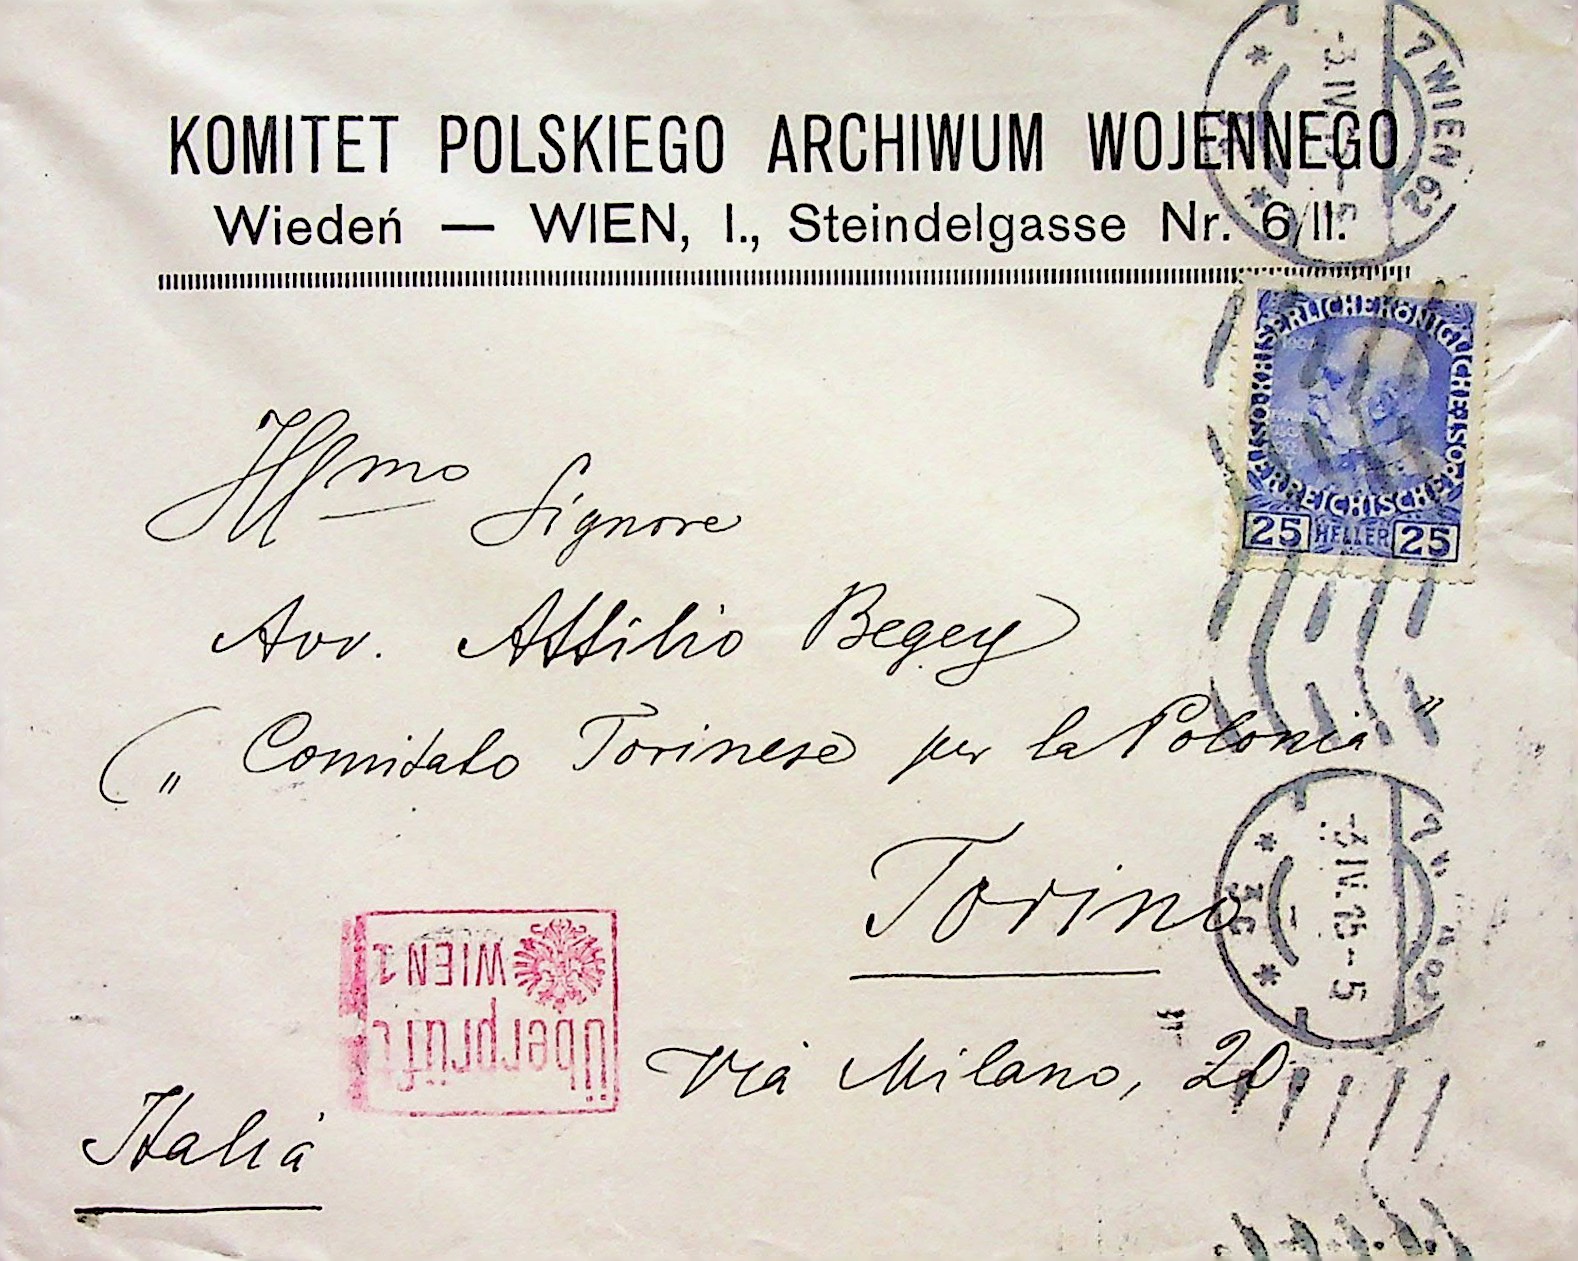 KOMITET POLSKIEGO ARCHIWUM WOJENNEGO
Wiedeń — WIEN, I., Steindelgasse Nr. 6/II.
7 WIEN 62
-3.IV
KAISERLICHE KÖNIGLICHE ÖSTERREICHISCHE POST
25 HELLER 25
Illmo Signore
Avv. Attilio Begey
(„Comitato Torinese per la Polonia"
Torino
7 W
-3.IV.15--5
Überprüft
WIEN 1
Via Milano, 20
Italia